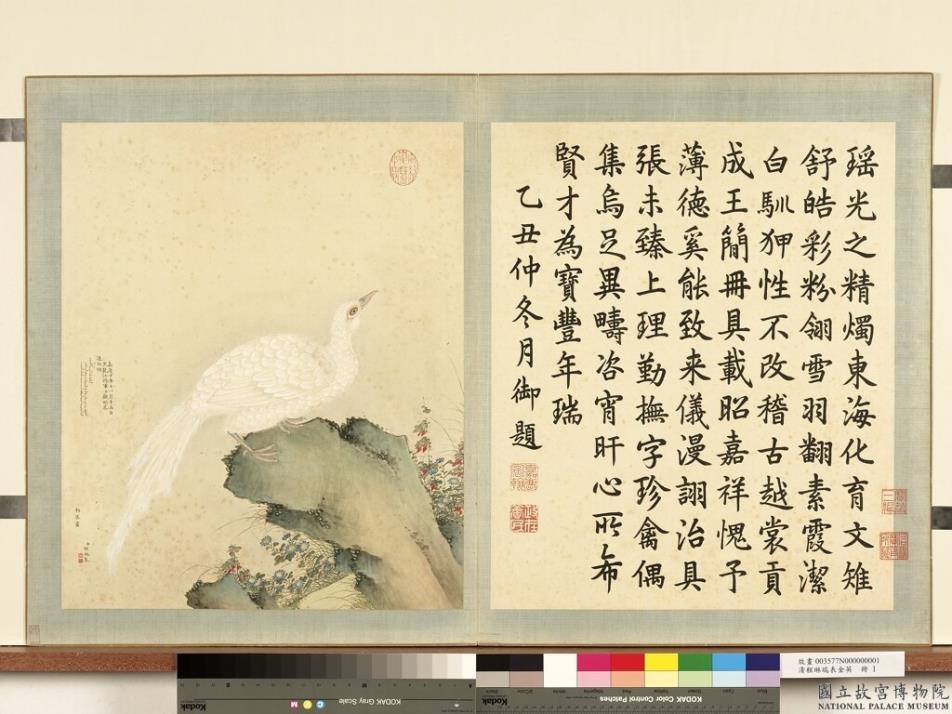 瑶光之精燭東海化育文雉
舒皓彩粉翎雪羽翻素霞潔
白馴狎性不改稽古越裳貢
成王簡冊具載昭嘉祥愧予
薄德奚能致来儀漫詡治具
張未臻上理勤撫字珍禽偶
集烏足異疇咨宵旰心所布
賢才為寶豐年瑞
乙丑仲冬月御題
故畫 003577N000000001
清程琳瑞表金英 冊 1
國立故宮博物院
NATIONAL PALACE MUSEUM
Kodak
KODAK Gray Scale
C
Y
M
Kodak
KODAK Color Control Patches